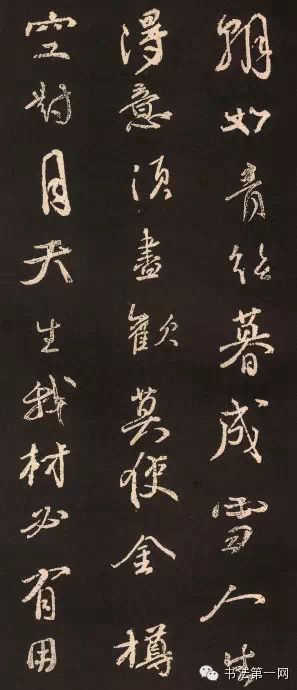 朝如青絲暮成雪人生
得意須盡歡莫使金樽
空對月天生我材必有用
书法第一网